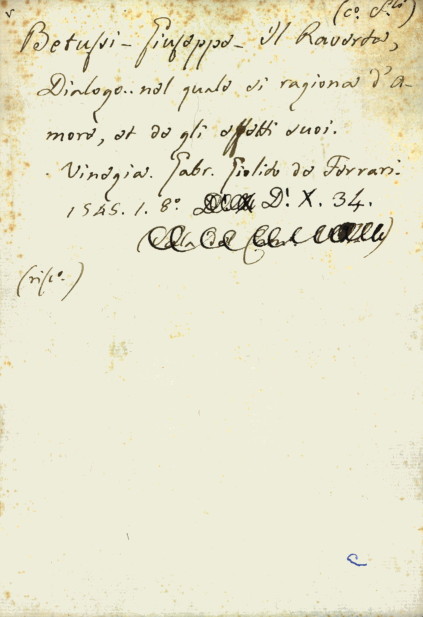 Betussi - Giuseppe - Il Raverta,
Dialogo.. nel quale si ragiona d'a-
more, et de gli effetti suoi.
Vinegia. Gabr. Giolito de Ferrari.
1545. 1. 8.° D.' X. 34.
(risc.°)